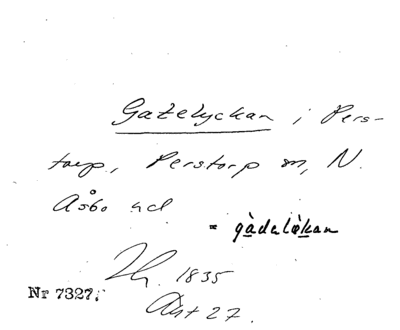 Gatelyckan i Pers-
torp, Perstorp sn, N.
Åsbo hd
= gàdelòkan
1835
Nr 7327.
Akt 27.